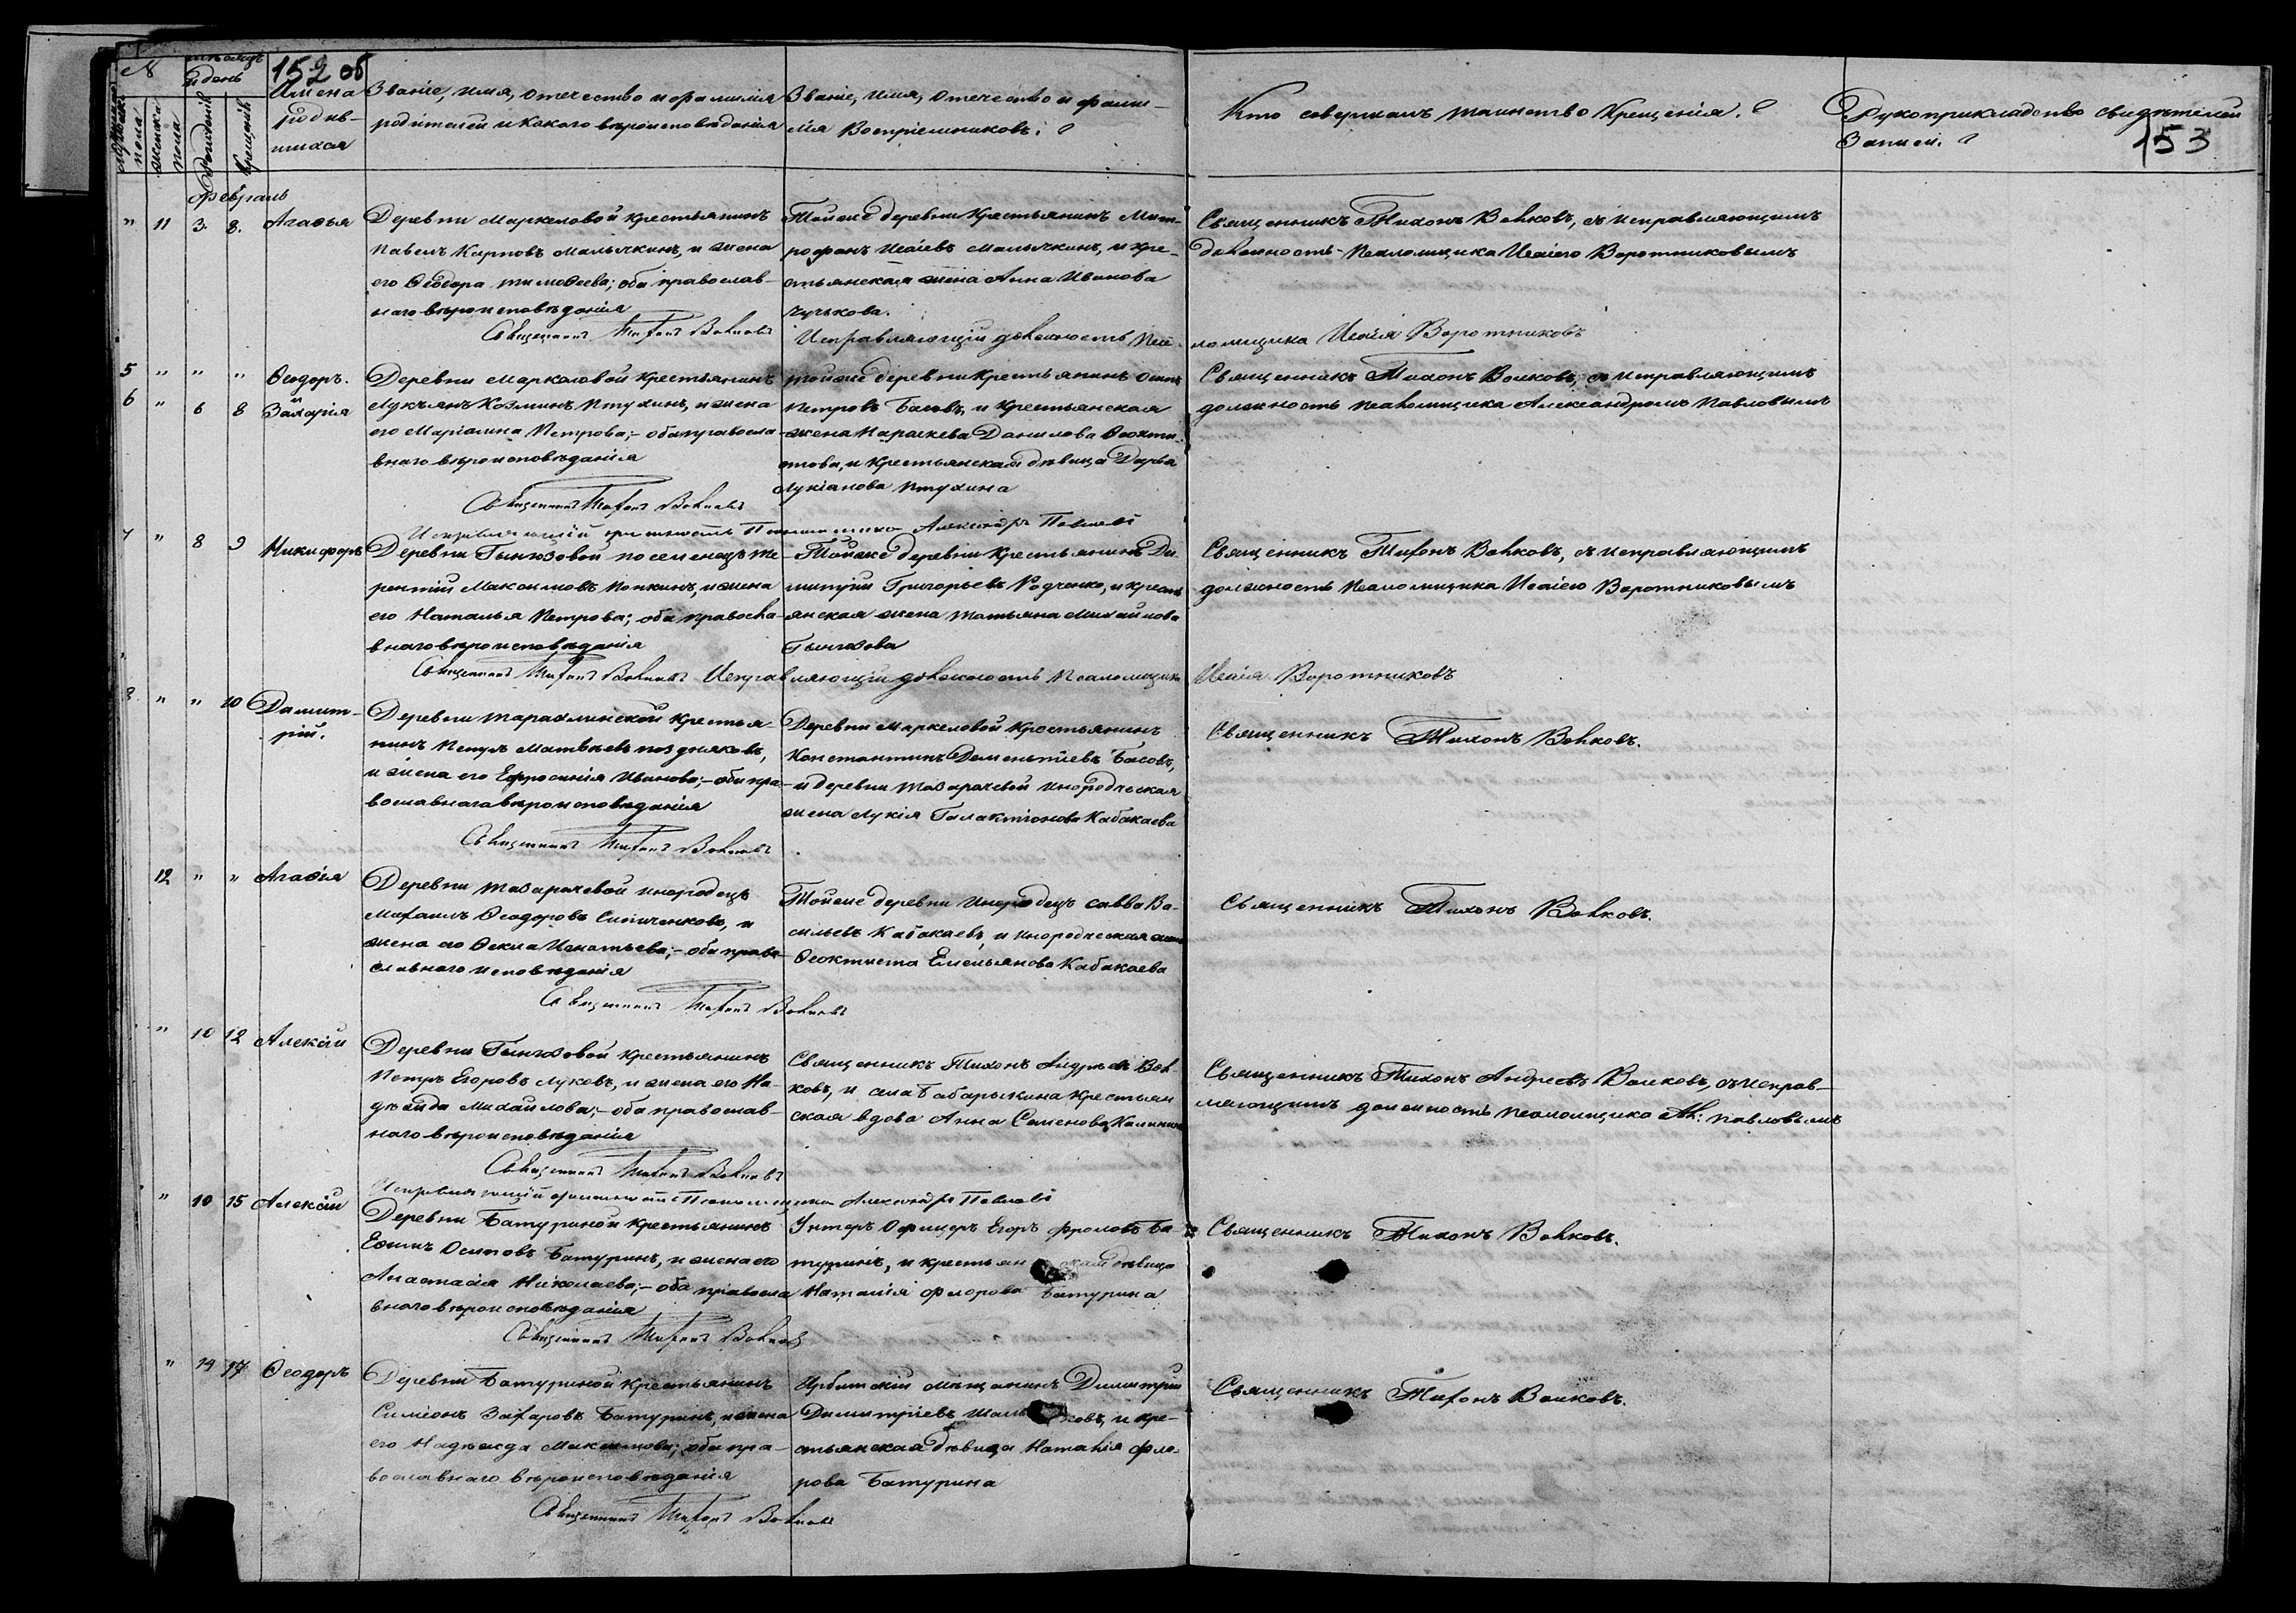 152 об
№
мѣсяцъ
и день
мужска пола
женска пола
Рожденія
Крещенія
Имена
родив-
шихся
Званіе, имя, отечество и фамилія
родителей и какого вѣроисповѣданія
Званіе, имя, отечество и фами-
лія Воспріемниковъ.
Кто совершалъ таинство Крещенія.
Рукоприкладство свидѣтелей
Записи.
153
Февраль
" 11 3. 8. Агаѳья
Деревни Маркеловой крестьянинъ
Павелъ Карповъ Малычкинъ, и жена
его Ѳеодора Тимоѳеева; оба православ-
наго вѣроисповѣданія
Священникъ Тихонъ Волковъ
Тойже деревни Крестьянинъ Мит-
рофанъ Исаіевъ Малычкинъ, и кре-
стьянская жена Анна Иванова
Чучкова.
Исправляющій должность Пса-
ломщика Исаія Воротниковъ
Священникъ Тихонъ Волковъ, съ исправляющимъ
должность Псаломщика Исаіею Воротниковымъ
5 " " " Ѳеодоръ.
и
6 " 6 8 Захарія
Деревни Маркеловой крестьянинъ
Лукъянъ Козминъ Птухинъ, и жена
его Маріамна Петрова;- оба правосла-
внаго вѣроисповѣданія
Священникъ Тихонъ Волковъ
Исправляющій должность Псаломщика Александръ Павловъ
тойже деревни крестьянинъ Осипъ
Петровъ Басовъ, и крестьянская
жена Параскева Данилова Ѳеокти-
стова, и крестьянская дѣвица Дарья
Лукіанова Птухина
Священникъ Тихонъ Волковъ, съ исправляющимъ
должность Псаломщика Александромъ Павловымъ
7 " 8 9 Никифоръ
Деревни Гынгазовой поселенецъ Те-
рентій Максимовъ Попкинъ, и жена
его Наталья Петрова; оба правосла-
внаго вѣроисповѣданія
Священникъ Тихонъ Волковъ Исправляющій должность Псаломщика
Исаія Воротниковъ
Тойже деревни Крестьянинъ Ди-
митрій Григорьевъ Родченко, и кресть
янская жена Татьяна Михайлова
Гынгазова
Священникъ Тихонъ Волковъ, съ исправляющимъ
должность Псаломщика Исаіею Воротниковымъ
8 " " 10 Димит-
рій.
Деревни Тарахлинской Крестья-
нинъ Петръ Матвѣевъ Поздняковъ,
и жена его Ефросинія Иванова;- оба пра-
вославнаго вѣроисповѣданія
Священникъ Тихонъ Волковъ
Деревни Маркеловой Крестьянинъ
Константинъ Дементіевъ Басовъ,
и деревни Тазарачевой инородческая
жена Лукія Галактіонова Кабакаева
Священникъ Тихонъ Волковъ.
12 " " Агаѳія
Деревни Тазарачевой инородецъ
Михаилъ Ѳеодоровъ Синиченковъ, и
жена его Ѳекла Игнатьева;- оба право-
славнаго исповѣданія
Священникъ Тихонъ Волковъ
Тойже деревни Инородецъ Савва Ва-
сильевъ Кабакаевъ, и инородческая жена
Ѳеоктиста Емельянова Кабакаева
Священникъ Тихонъ Волковъ.
" 10 12 Алексѣй
Деревни Гынгазовой крестьянинъ
Петръ Егоровъ Луковъ, и жена его На-
дѣжда Михайлова;- оба православ-
наго вѣроисповѣданія
Священникъ Тихонъ Волковъ
Исправляющій должность Псаломщика Александръ Павловъ
Священникъ Тихонъ Андреевъ Вол-
ковъ, и села Бабарыкина Крестьян
ская вдова Анна Семенова Калинина
Священникъ Тихонъ Андреевъ Волковъ, съ исправ-
ляющимъ должность Псаломщика Ал: Павловымъ
" 10 15 Алексій
Деревни Батуриной крестьянинъ
Евѳимъ Осиповъ Батуринъ, и жена его
Анастасія Николаева;- оба правосла
внаго вѣроисповѣданія
Священникъ Тихонъ Волковъ
Унтеръ Офицеръ Егоръ Фроловъ Ба
туринъ, и крестьян ская дѣвица
Наталія Флорова Батурина
Священникъ Тихонъ Волковъ.
" 14 17 Ѳеодоръ
Деревни Батуриной крестьянинъ
Симеонъ Захаровъ Батуринъ, и жена
его Надѣжда Максимова; оба пра-
вославнаго вѣроисповѣданія
Священникъ Тихонъ Волковъ
Ирбитскій мѣщанинъ Димитрій
Димитріевъ и кре-
стьянская дѣвица Наталія Фло-
рова Батурина
Священникъ Тихонъ Волковъ.